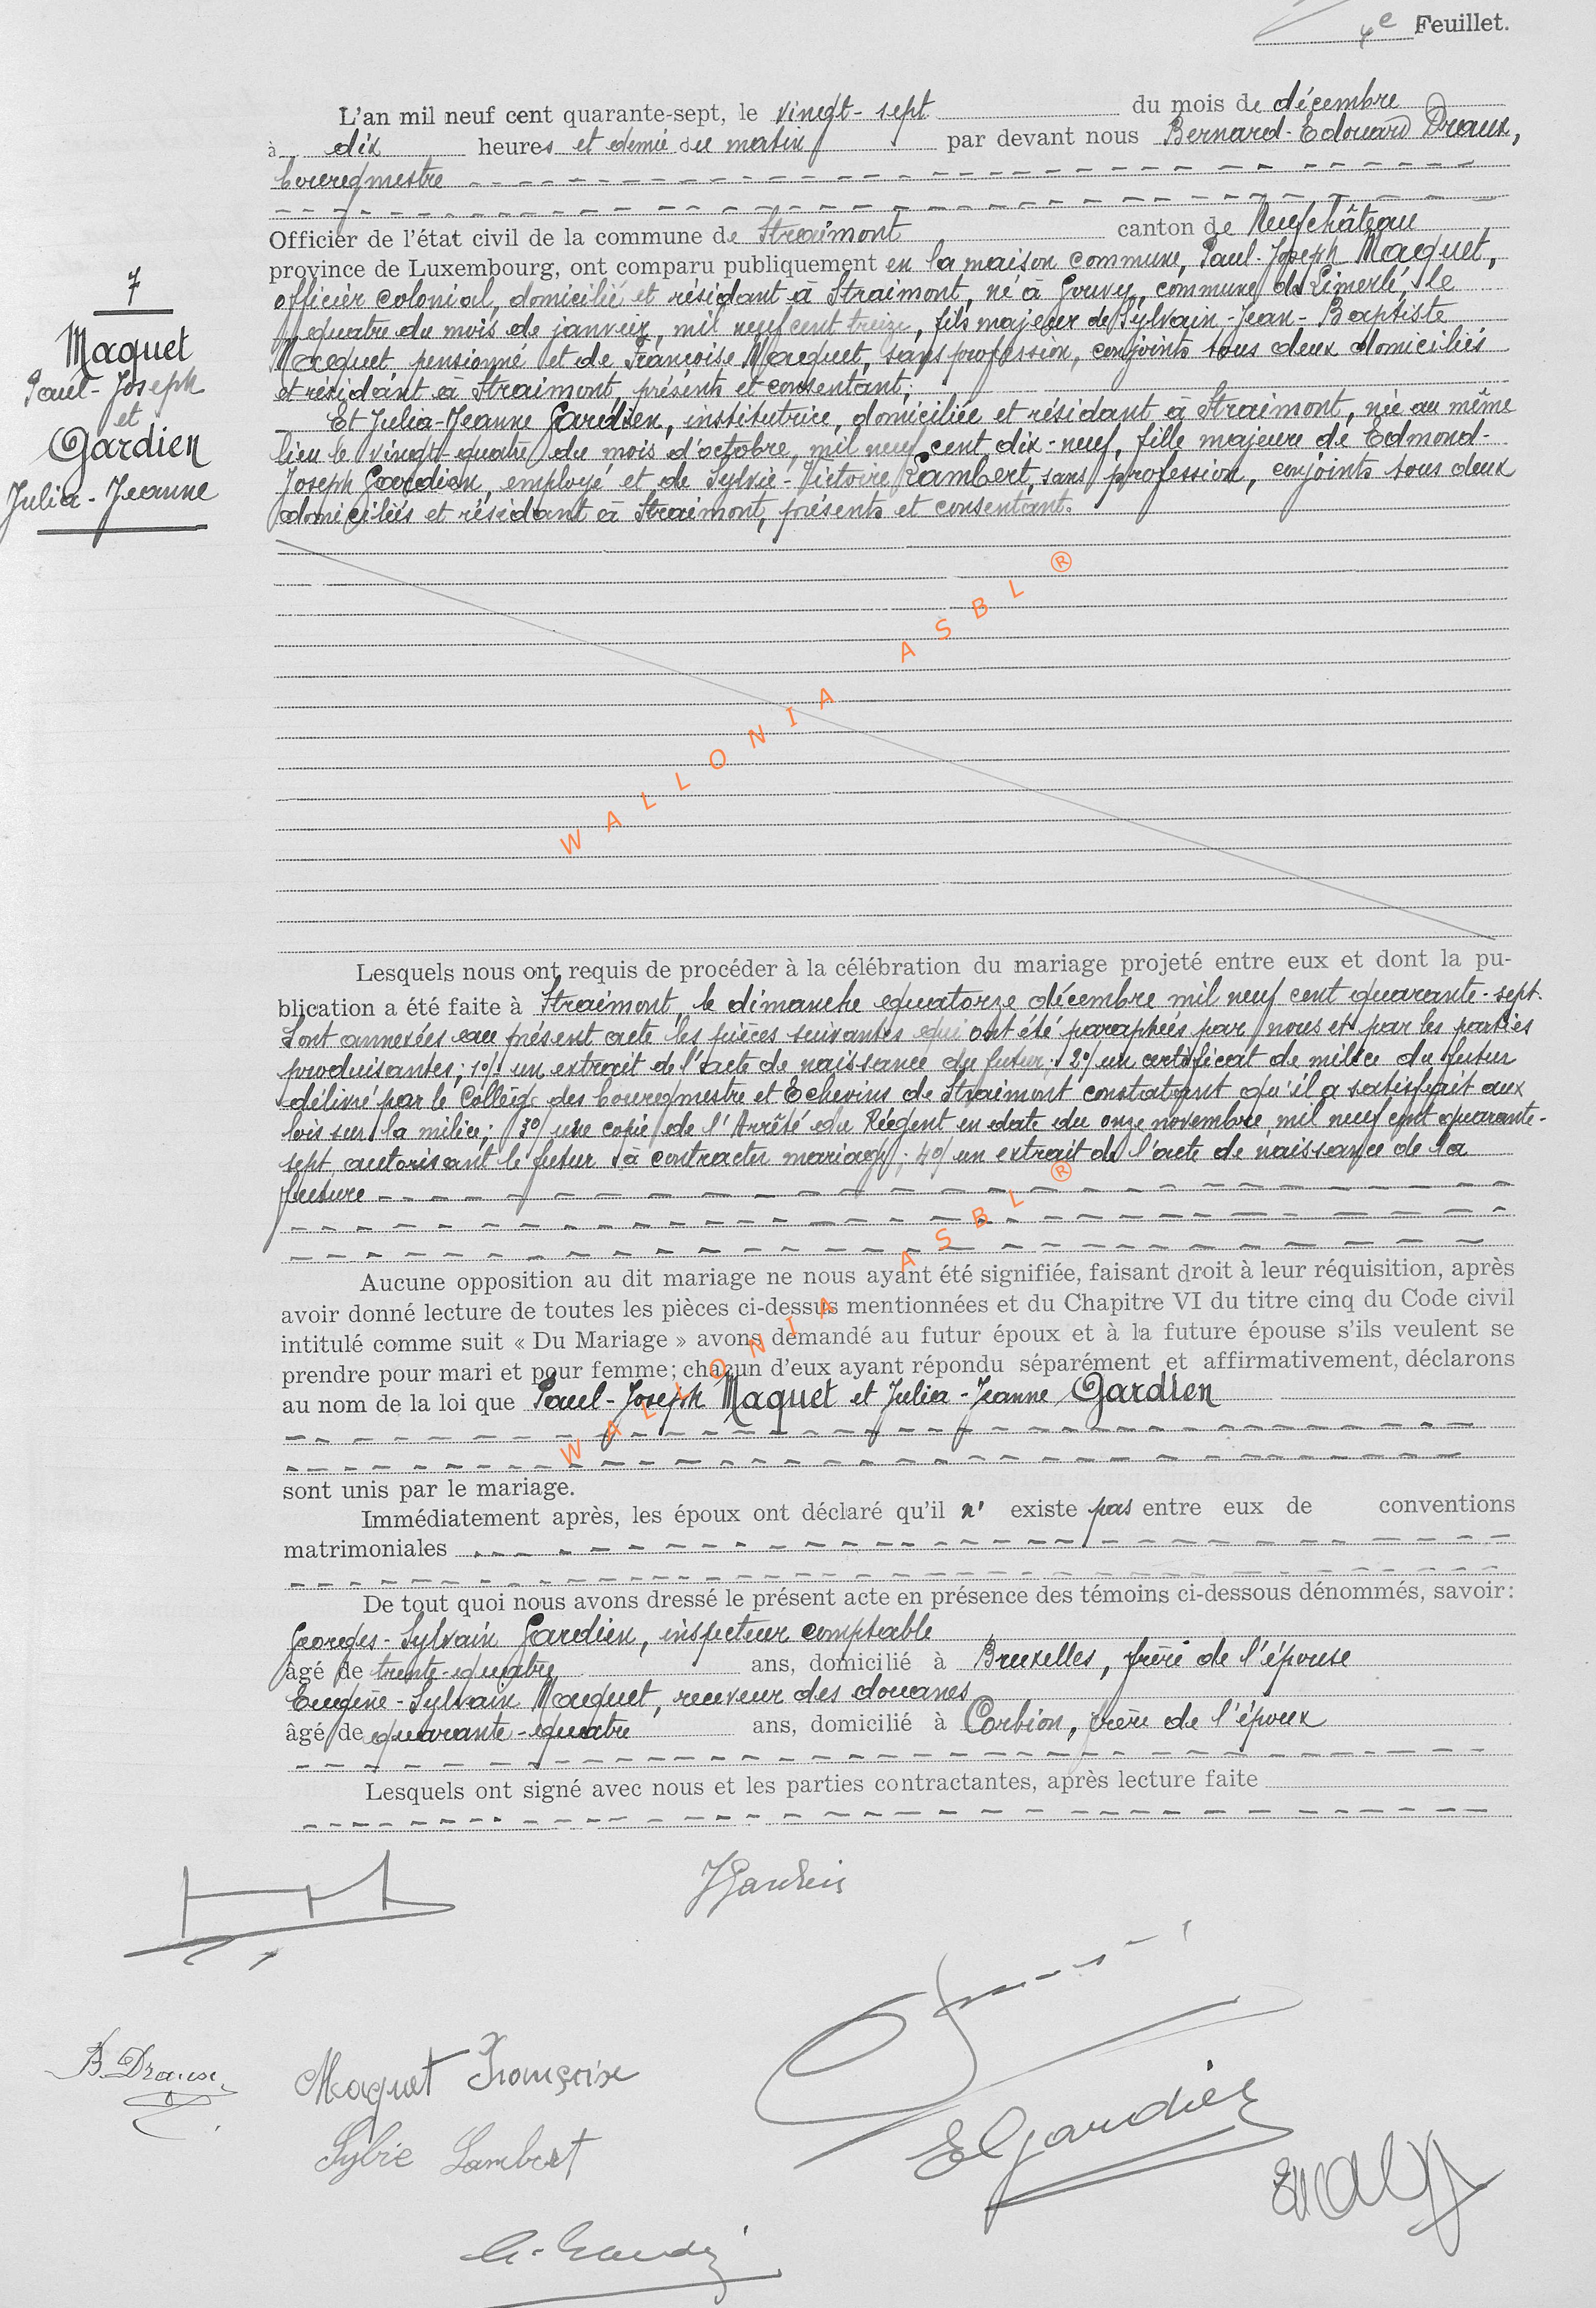 4e Feuillet.
L'an mil neuf cent quarante-sept, le vingt-sept du mois de décembre
à dix heures et demie du matin par devant nous Bernard-Edouard Draux,
bourgmestre
Officier de l'état civil de la commune de Straimont canton de Neufchâteau
province de Luxembourg, ont comparu publiquement en la maison commune, Paul-Joseph Maquet,
officier colonial, domicilié et résidant à Straimont, né à Gouvy, commune de Limerlé, le
quatre du mois de janvier, mil neuf cent treize, fils majeur de Sylvain-Jean-Baptiste
Maquet, pensionné et de Françoise Maquet, sans profession, conjoints tous deux domiciliés
et résidant à Straimont, présents et consentant;
Et Julia-Jeanne Gardien, institutrice, domiciliée et résidant à Straimont, née au même
lieu le vingt-quatre du mois d'octobre, mil neuf cent dix-neuf, fille majeure de Edmond-
Joseph Gardien, employé et de Sylvie-Victoire Lambert, sans profession, conjoints tous deux
domiciliés et résidant à Straimont, présents et consentant.
7
Maquet
Paul-Joseph
et
Gardien
Julia-Jeanne
WALLONIA ASBL ®
Lesquels nous ont requis de procéder à la célébration du mariage projeté entre eux et dont la pu-
blication a été faite à Straimont, le dimanche quatorze décembre mil neuf cent quarante-sept.
Sont annexées au présent acte les pièces suivantes qui ont été paraphées par nous et par les parties
produisantes; 1o/ un extrait de l'acte de naissance du futur; 2o/ un certificat de milice du futur
délivré par le Collège des bourgmestre et Echevins de Straimont constatant qu'il a satisfait aux
lois sur la milice; 3o/ une copie de l'Arrêté du Régent en date du onze novembre mil neuf cent quarante-
sept autorisant le futur à contracter mariage; 4o/ un extrait de l'acte de naissance de la
future
WALLONIA ASBL ®
Aucune opposition au dit mariage ne nous ayant été signifiée, faisant droit à leur réquisition, après
avoir donné lecture de toutes les pièces ci-dessus mentionnées et du Chapitre VI du titre cinq du Code civil
intitulé comme suit « Du Mariage » avons demandé au futur époux et à la future épouse s'ils veulent se
prendre pour mari et pour femme; chacun d'eux ayant répondu séparément et affirmativement, déclarons
au nom de la loi que Paul-Joseph Maquet et Julia-Jeanne Gardien
sont unis par le mariage.
Immédiatement après, les époux ont déclaré qu'il n' existe pas entre eux de conventions
matrimoniales
De tout quoi nous avons dressé le présent acte en présence des témoins ci-dessous dénommés, savoir:
Georges-Sylvain Gardien, inspecteur comptable
âgé de trente-quatre ans, domicilié à Bruxelles, frère de l'épouse
Eugène-Sylvain Maquet, receveur des douanes
âgé de quarante-quatre ans, domicilié à Corbion, frère de l'époux
Lesquels ont signé avec nous et les parties contractantes, après lecture faite
JGardien
B. Draux
Maquet Françoise
Sylvie Lambert
EGardien